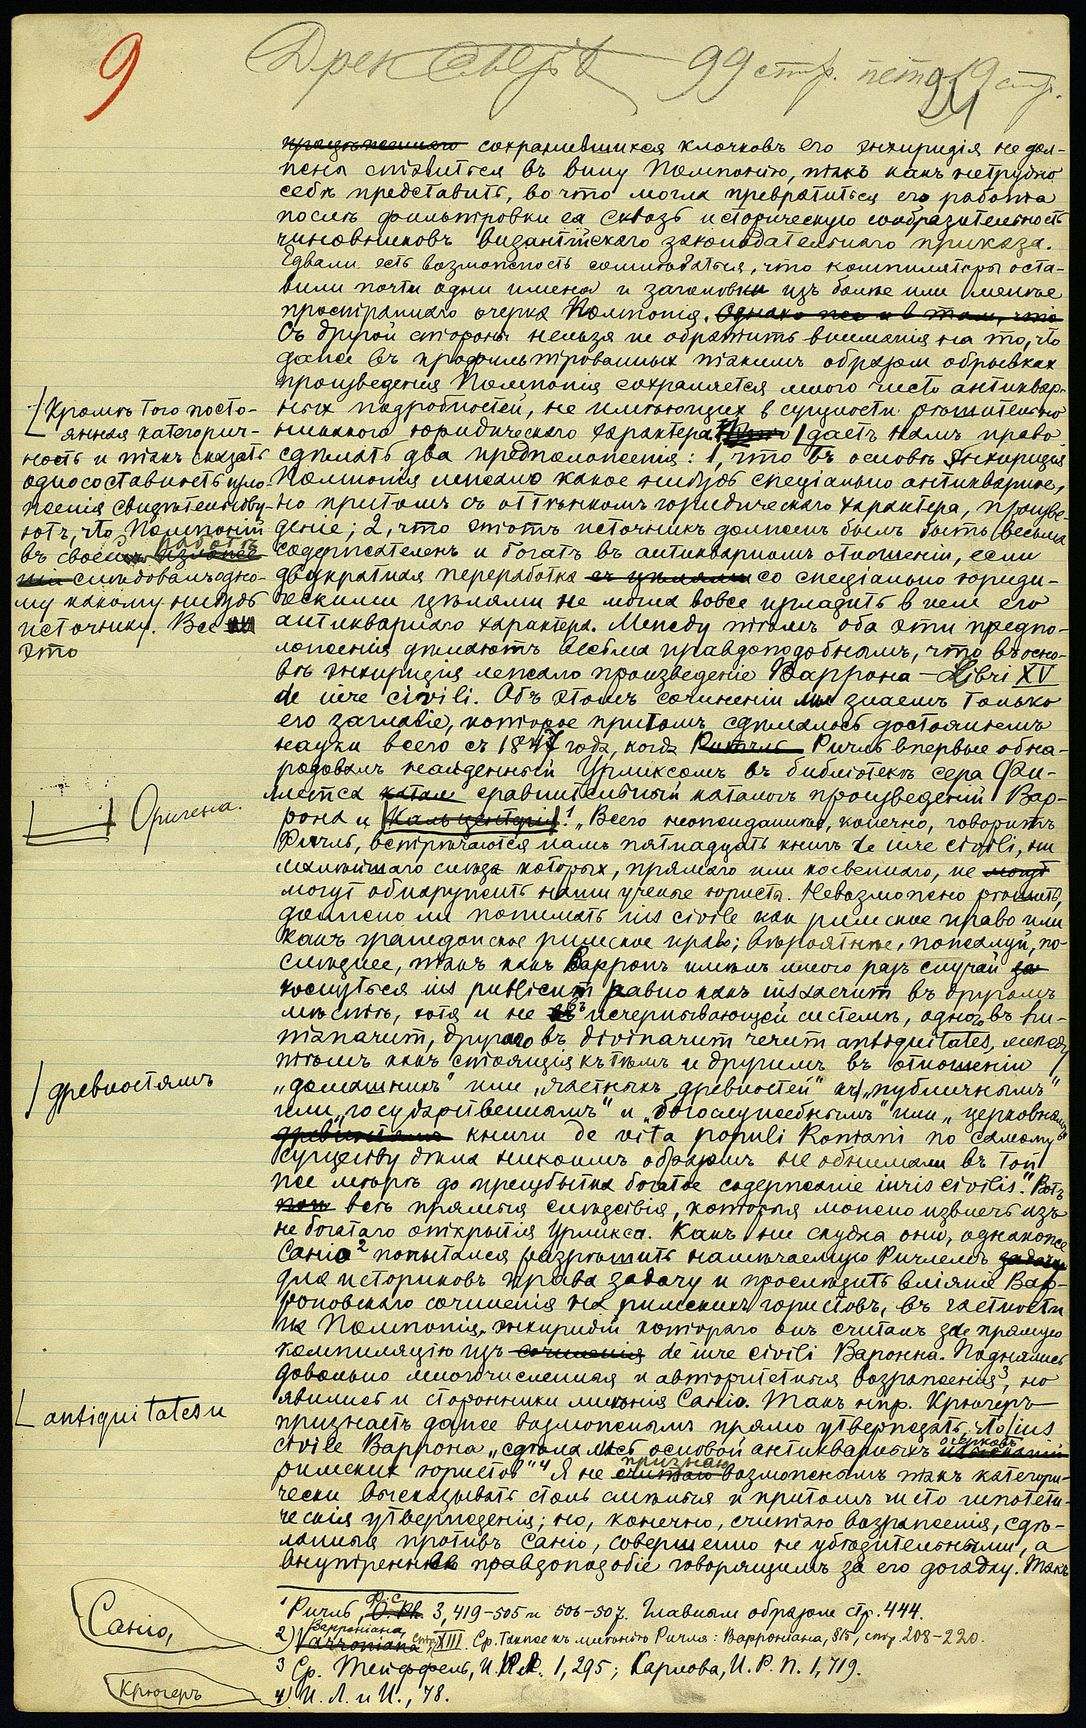 9
99 стр. пето 19 стр.
21
сохранившихся клочковъ его энхиридія не дол-
жна ставиться въ вину Помпонію, такъ какъ нетрудно
себѣ представить, во что могла превратиться его работа
послѣ фильтровки ея сквозь историческую сообразительность
чиновниковъ византійскаго законодательнаго приказа.
Едвали есть возможность сомнѣваться, что компиляторы оста-
вили почти одни имена и заголовки изъ болѣе или менѣе
пространнаго очерка Помпонія. Однако все и в том, что
Съ другой стороны нельзя не обратить вниманія на то, что
даже въ профильтрованныхъ такимъ образом обрывкахъ
произведенія Помпонія сохраняется много чисто антиквар-
ныхъ подробностей, не имѣющихъ в сущности рѣшительно
никакого юридическаго характера. даетъ намъ право
сдѣлать два предположенія: 1, что въ основѣ Энхиридія
Помпонія лежало какое нибудь спеціально антикварное,
но притомъ съ оттѣнкомъ юридическаго характера, произве-
деніе; 2, что этотъ источникъ долженъ былъ быть весьма
содержателенъ и богатъ въ антикварномъ отношеніи, если
двукратная переработка съ цѣлями со спеціально юриди-
ческими цѣлями не могла вовсе изгладить в нем его
антикварнаго характера. Между тѣмъ оба эти предпо-
ложенія дѣлаютъ весьма правдоподобнымъ, что въ осно-
вѣ энхиридія лежало произведеніе Варрона – Libri XV
de iure civili. Объ этомъ сочиненіи мы знаемъ только
его заглавіе, которое притомъ сдѣлалось достояніемъ
науки всего съ 1847 года, когда Ричль Ричль впервые обна-
родовалъ найденный Урликсомъ въ библіотекѣ сера Фи-
липса катал сравнительный каталогъ произведеній Вар-
рона и ¹ „Всего неожиданнѣе, конечно, говоритъ
Ричль, встрѣчаются намъ пятнадцать книгъ de iure civili, ни
малѣйшаго слѣда которыхъ, прямаго или косвеннаго, не могут
могут обнаружить наши ученые юристы. Невозможно рѣшить,
должно ли понимать ius civile как римское право или
какъ гражданское римское право; вѣроятнѣе, пожалуй, по-
слѣднее, такъ какъ Варронъ имѣлъ много разъ случай за
коснуться ius publicum равно какъ ius sacrum въ другомъ
мѣстѣ, хотя и не въ исчерпывающей системѣ, одного въ hu-
manarum, другаго въ divinarum rerum antiquitates, между
тѣмъ какъ стоящія къ тѣмъ и другимъ въ отношеніи
„домашнихъ“ или „частныхъ древностей“ къ „публичнымъ“
или „государственнымъ“ и „богослужебнымъ“ или „церковнымъ“
древностямъ книги de vita populi Romani по самому
существу дѣла никоимъ образомъ не обнимали въ той
же мѣрѣ до преизбытка богатое содержаніе iuris civilis.“ Вотъ
всѣ прямыя слѣдствія, которыя можно извлечь изъ
небогатаго открытія Урликса. Какъ ни скудна они, однакоже
Саніо² попытался разрѣшить намѣчаемую Ричлемъ задачу
для историковъ права задачу и прослѣдить вліяніе Вар-
роновскаго сочиненія на римскихъ юристовъ, въ частности
на Помпонія, энхиридій котораго онъ считалъ за прямую
компиляцію изъ сочиненія de iure civili Варрона. Поднялись
довольно многочисленныя и авторитетныя возраженія³, но
явились и сторонники мнѣнія Саніо. Так нпр. Крюгеръ
признаетъ даже возможнымъ прямо утверждать, что ius
civile Варрона „сдѣлалась основой антикварныхъ очерковъ изысканій
римских юристов“⁴ Я не признаю считаю возможнымъ такъ категори-
чески высказывать столь смѣлыя и притомъ чисто гипотети-
ческія утвержденія; но, конечно, считаю возраженія, сдѣ-
ланныя противъ Саніо, совершенно не убѣдительными, а
внутреннее правдоподобіе говорящимъ за его догадку. Такъ
Кромѣ того посто-
янная категорич-
ность и такъ сказать
односоставность изло-
женія свидѣтельству-
ютъ, что Помпоній
въ своей работѣ
слѣдовалъ одно-
му какому нибудь
источнику. Все
это
Оригена.
древностямъ
antiquitatesи
Саніо,
Крюгеръ
¹ Ричль, O. Ph. 3, 419–505 и 506–507. Главным образом стр. 444.
2) Varroniana Варроніана, стр. XIII. Ср. Также къ мнѣнію Ричля: Варроніана, 815, стр. 208–220.
3 Ср. Тейффель, И. Р. Л. 1, 295; Карлова, И. Р. П. 1, 719.
4) И. Л. и И., 78.